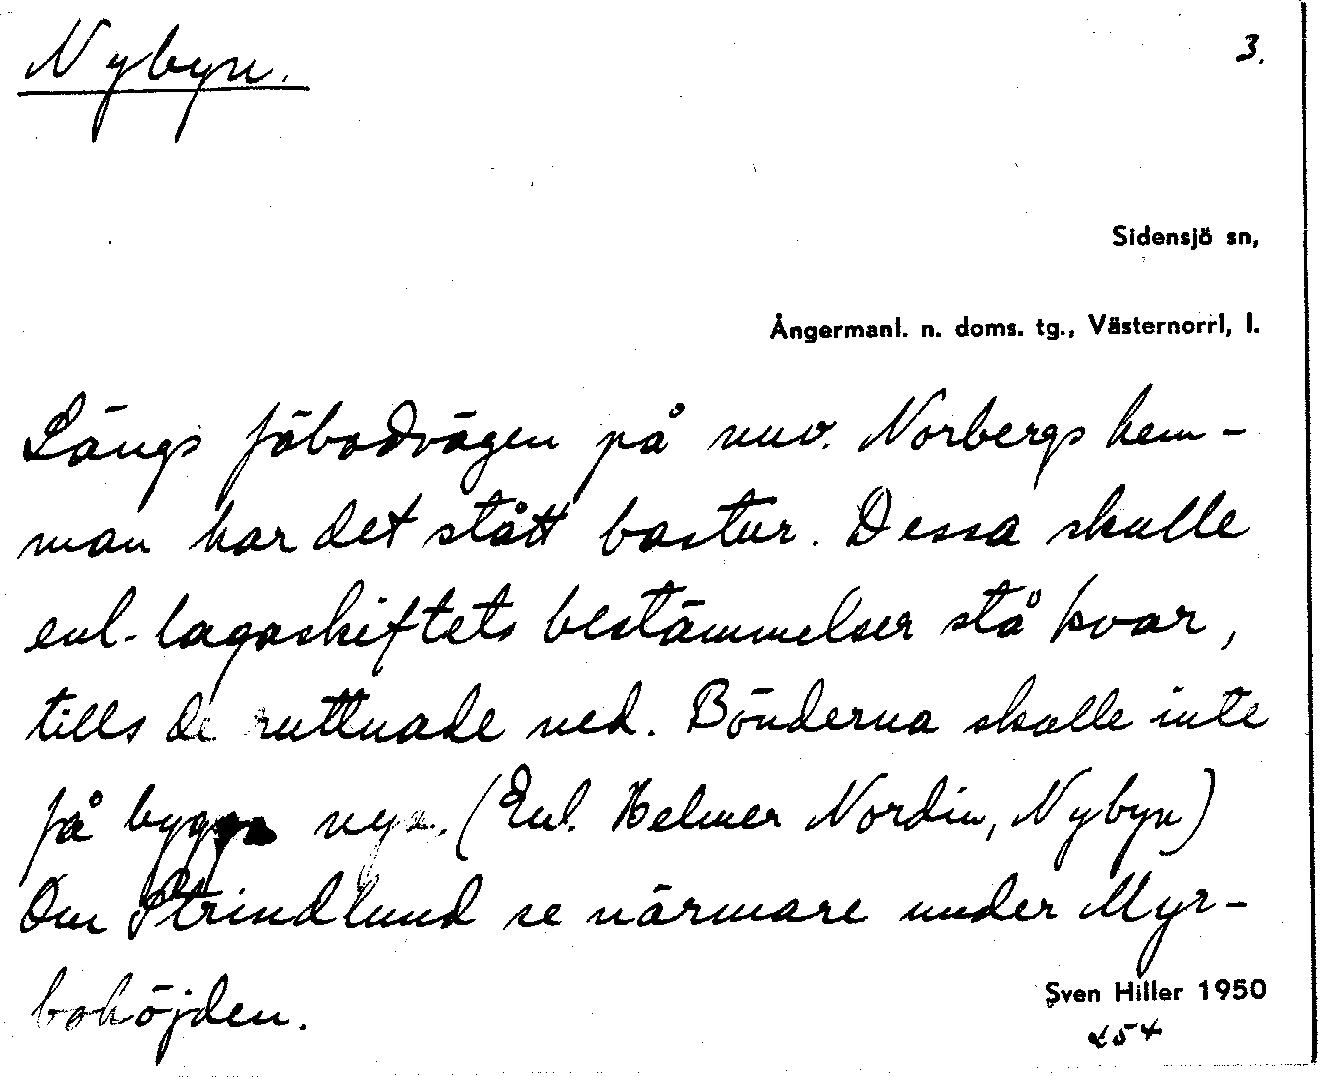 Nybyn.
3.
Sidensjö sn,
Ångermanl. n. doms. tg., Västernorrl, l.
Längs fäbodvägen på nuv. Norbergs hem-
man har det stått bastur. Dessa skulle
enl. lagaskiftets bestämmelser stå kvar,
tills de ruttnade ned. Bönderna skulle inte
få bygga nya. (Enl. Helmer Nordin, Nybyn)
Om Strindlund se närmare under Myr-
bohöjden.
Sven Hiller 1950
254